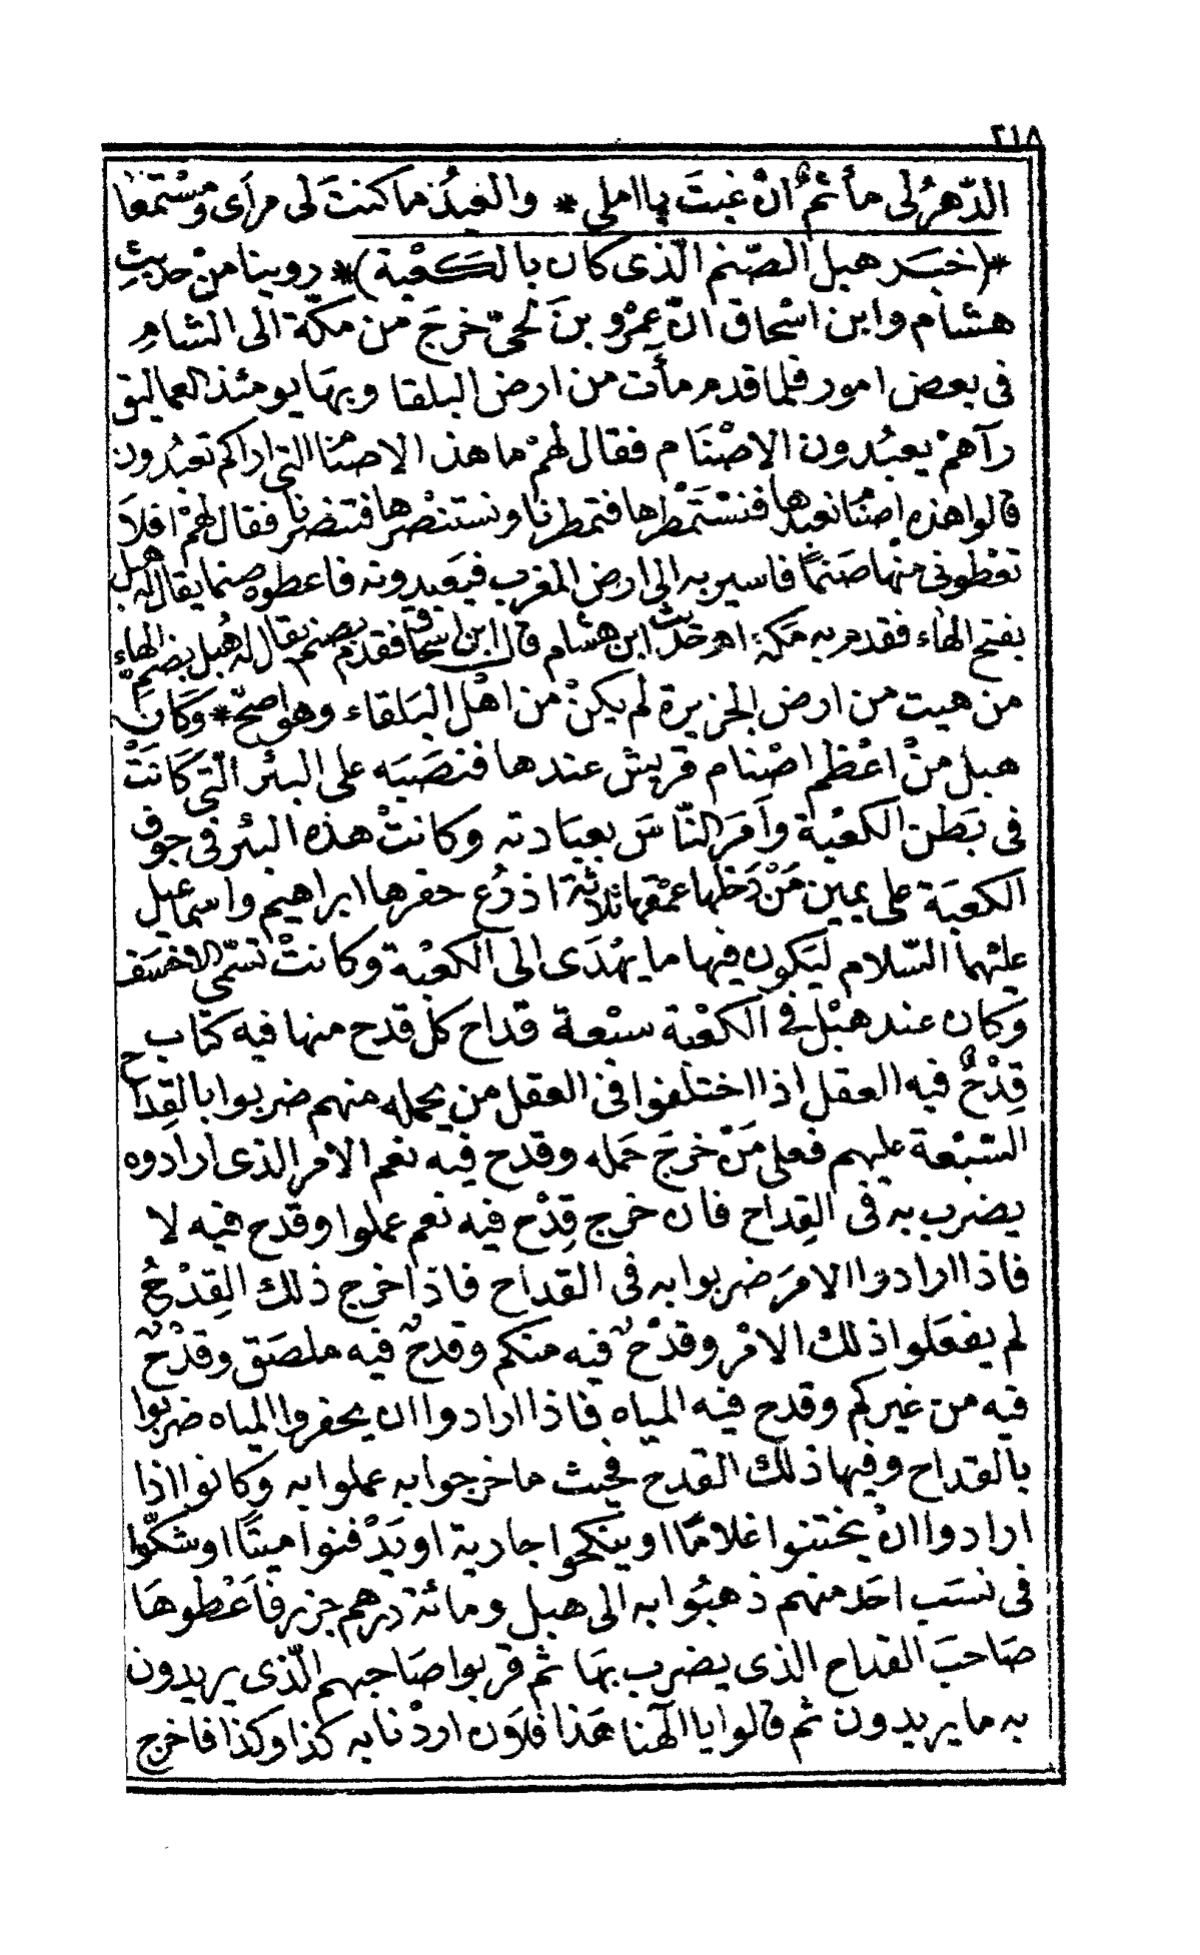 ٢١٨
الدّهرُ لى مأتمٌ ان غبتَ يا املى * والعيدُ ما كنتَ لى مرآى ومستمعا
*(خبر هبل الصّنم الّذى كان بالكعْبة)* روينا منْ حديثِ
هشام وابن اسْحاق انّ عمرْو بنَ لحىّ خرجَ من مكّة الى الشامِ
فى بعض امور فلما قدم مأت من ارض البلقا وبهَا يومئذ العماليق
رآهمْ يعبُدون الاصْنَام فقال لهمْ ما هذه الاصنَام التى اراكم تعبُدون
قالوا هذه اصنَام نعبدها فنسْتَمْطرها فتمطرنا ونستنصْرها فتنصرنا فقال لهمْ افلاَ
تعْطونى منْها صَنماً فاسير به الى ارض المغرب فيَعبدونه فاعطوه صنما يقال له هبل
بفتح الهَاء فقدم به مَكة اهـ حَديثُ ابن هشام قال ابن اسحاق فقدم بصنم يقال له هُبل بضم الهاء
من هيت من ارض الجزيرة لم يكنْ من اهْل البَلقاء وهو اصحّ * وَكَان
هبل منْ اعْظم اصْنام قريش عندها فنصَبَه على البئر الّتى كَانَتْ
فى بَطن الكعْبَة وأمَرَ النّاسَ بعبَادته وكانتْ هذه البئر فى جوف
الكعبَة على يمين مَنْ دَخلها عمْقها ثلاثة اذرُع حفرها ابراهيم واسماعيل
عليْهما السّلام ليَكون فيها ما يهْدَى الى الكعْبة وكانتْ تسَمّى الاخسَف
وَكان عند هبْل فى الكعْبة سبْعة قداح كلّ قدح منها فيه كتاب
قِدْحٌ فيه العقل اذا اختلفوا فى العقل من يحمله منهم ضربوا بالقِداح
السّبْعة عليهم فعلى مَنْ خرجَ حَمله وقدح فيه نعم الامر الذى ارادوه
يضرب به فى القِداح فان خرج قِدْح فيه نعم عملوا وقدح فيه لا
فاذا ارادوا الامرَ ضربوا به فى القداح فاذا خرج ذلك القِدْحُ
لم يفعَلوا ذلك الامْر وقدْحٌ فيه منكم وقدحٌ فيه ملصَق وقدْحٌ
فيه من غيركم وقدح فيه المياه فاذا ارادوا ان يحفروا المياه ضربوا
بالقداح وفيها ذلك القدح فحيث ما خرجوا به عملوا به وكانوا اذا
ارادوا انْ يختنوا غلامًا او ينكحوا جارية او يَدْفنوا ميتًا او شكّوا
فى نسَب احَد منهم ذهبُوا به الى هبل ومائة درهم جزر فاَعْطوهَا
صَاحبَ القداح الذى يضرب بهَا ثم قربوا صَاحبهم الّذى يريدون
به ما يريدون ثم قالوا يا الهنا هَذا فلاَن اردْنا به كذا وكذا فاخرج